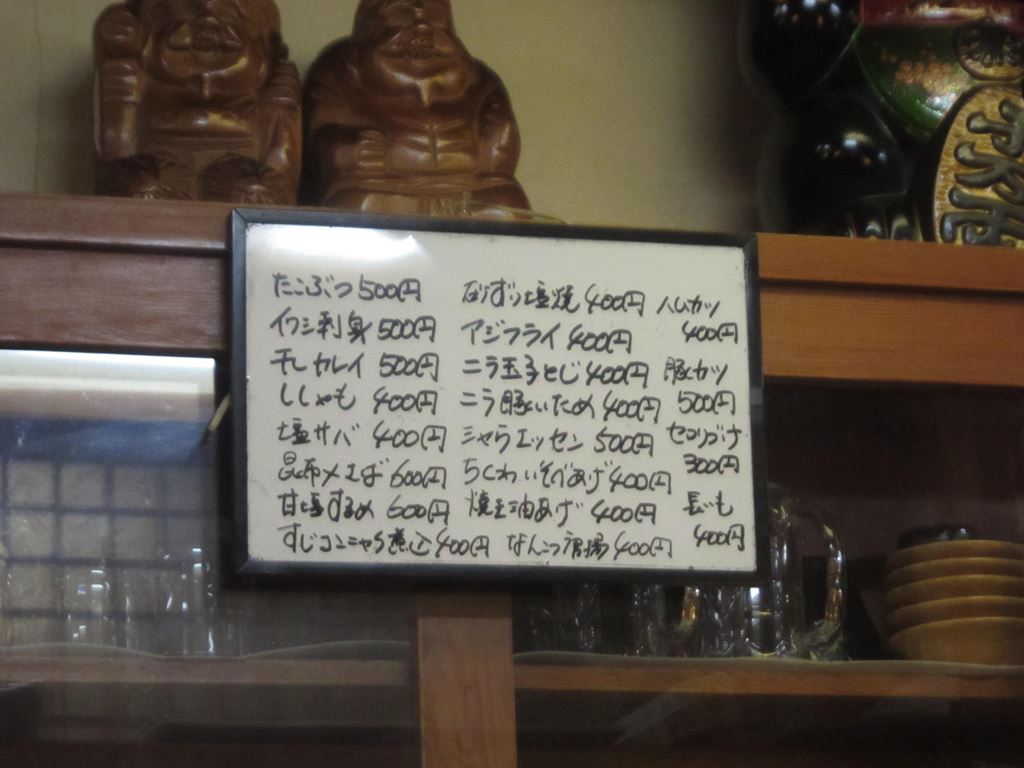 たこぶつ 500円
イワシ刺身 500円
干しカレイ 500円
ししゃも 400円
塩サバ 400円
昆布〆さば 600円
甘塩するめ 600円
すじコンニャク煮込 400円
砂ずり塩焼 400円
アジフライ 400円
ニラ玉子とじ 400円
ニラ豚いため 400円
シャウエッセン 500円
ちくわいそべあげ 400円
焼 油あげ 400円
なんこつ 揚 400円
ハムカツ
400円
豚カツ
500円
セコリブナ
300円
長いも
400円